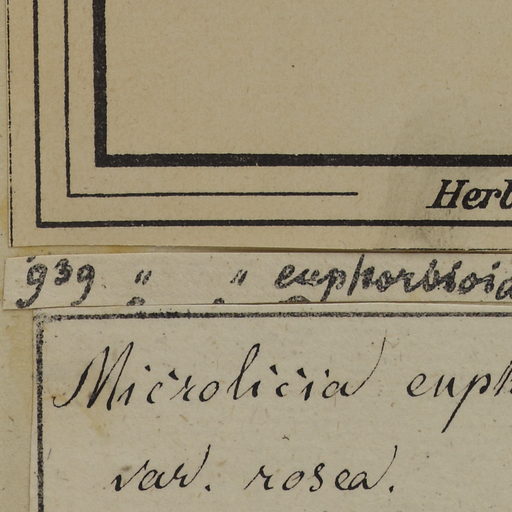 Herb
939 " " euphorbioid
Microlicia euph
var. rosea.